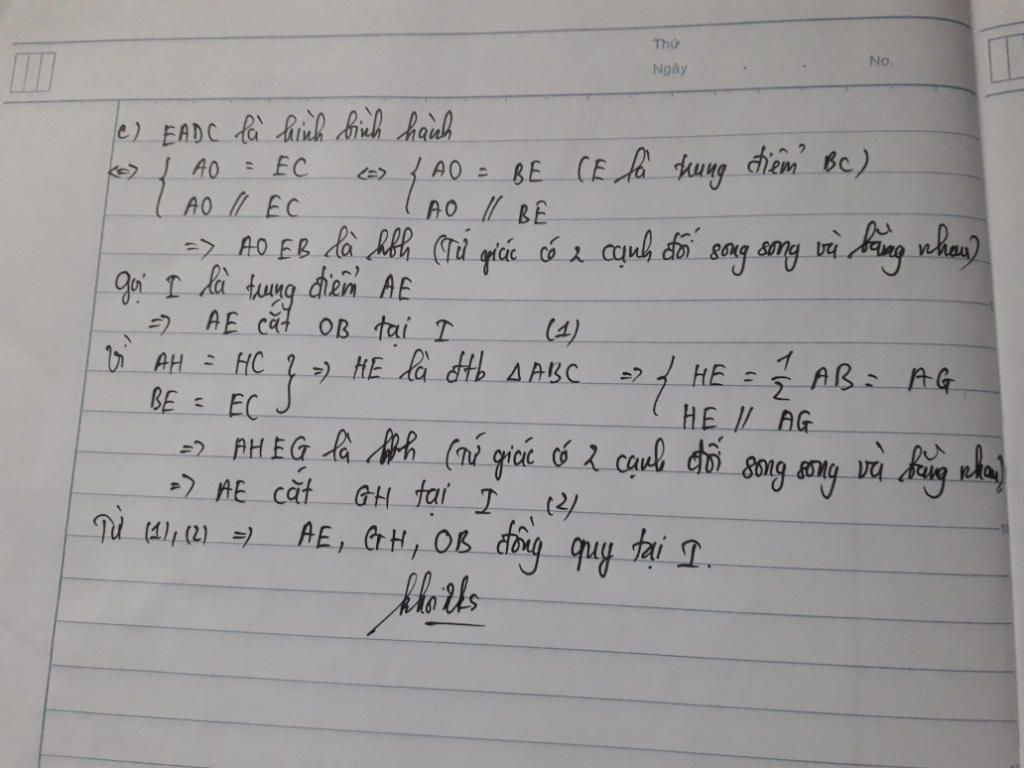 Thứ
Ngày . . No.
c) EADC là hình bình hành
<=> { AO = EC <=> { AO = BE (E là trung điểm BC)
AO // EC AO // BE
=> AOEB là hbh (Tứ giác có 2 cạnh đối song song và bằng nhau)
Gọi I là trung điểm AE
=> AE cắt OB tại I (1)
Vì AH = HC } => HE là đtb ΔABC => { HE = 1/2 AB = AG
BE = EC HE // AG
=> AHEG là hbh (Tứ giác có 2 cạnh đối song song và bằng nhau)
=> AE cắt GH tại I (2)
Từ (1), (2) => AE, GH, OB đồng quy tại I.